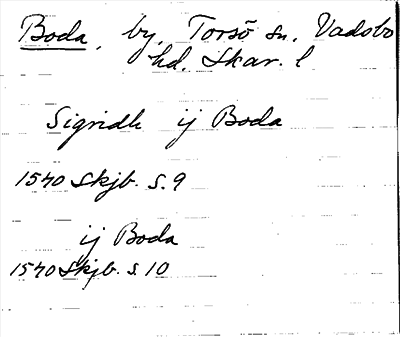 Boda, by, Torsö sn. Vadsbo
hd. Skar. l
Sigridh ij Boda
1540 Skjb. s. 9
ij Boda
1540 Skjb. s. 10